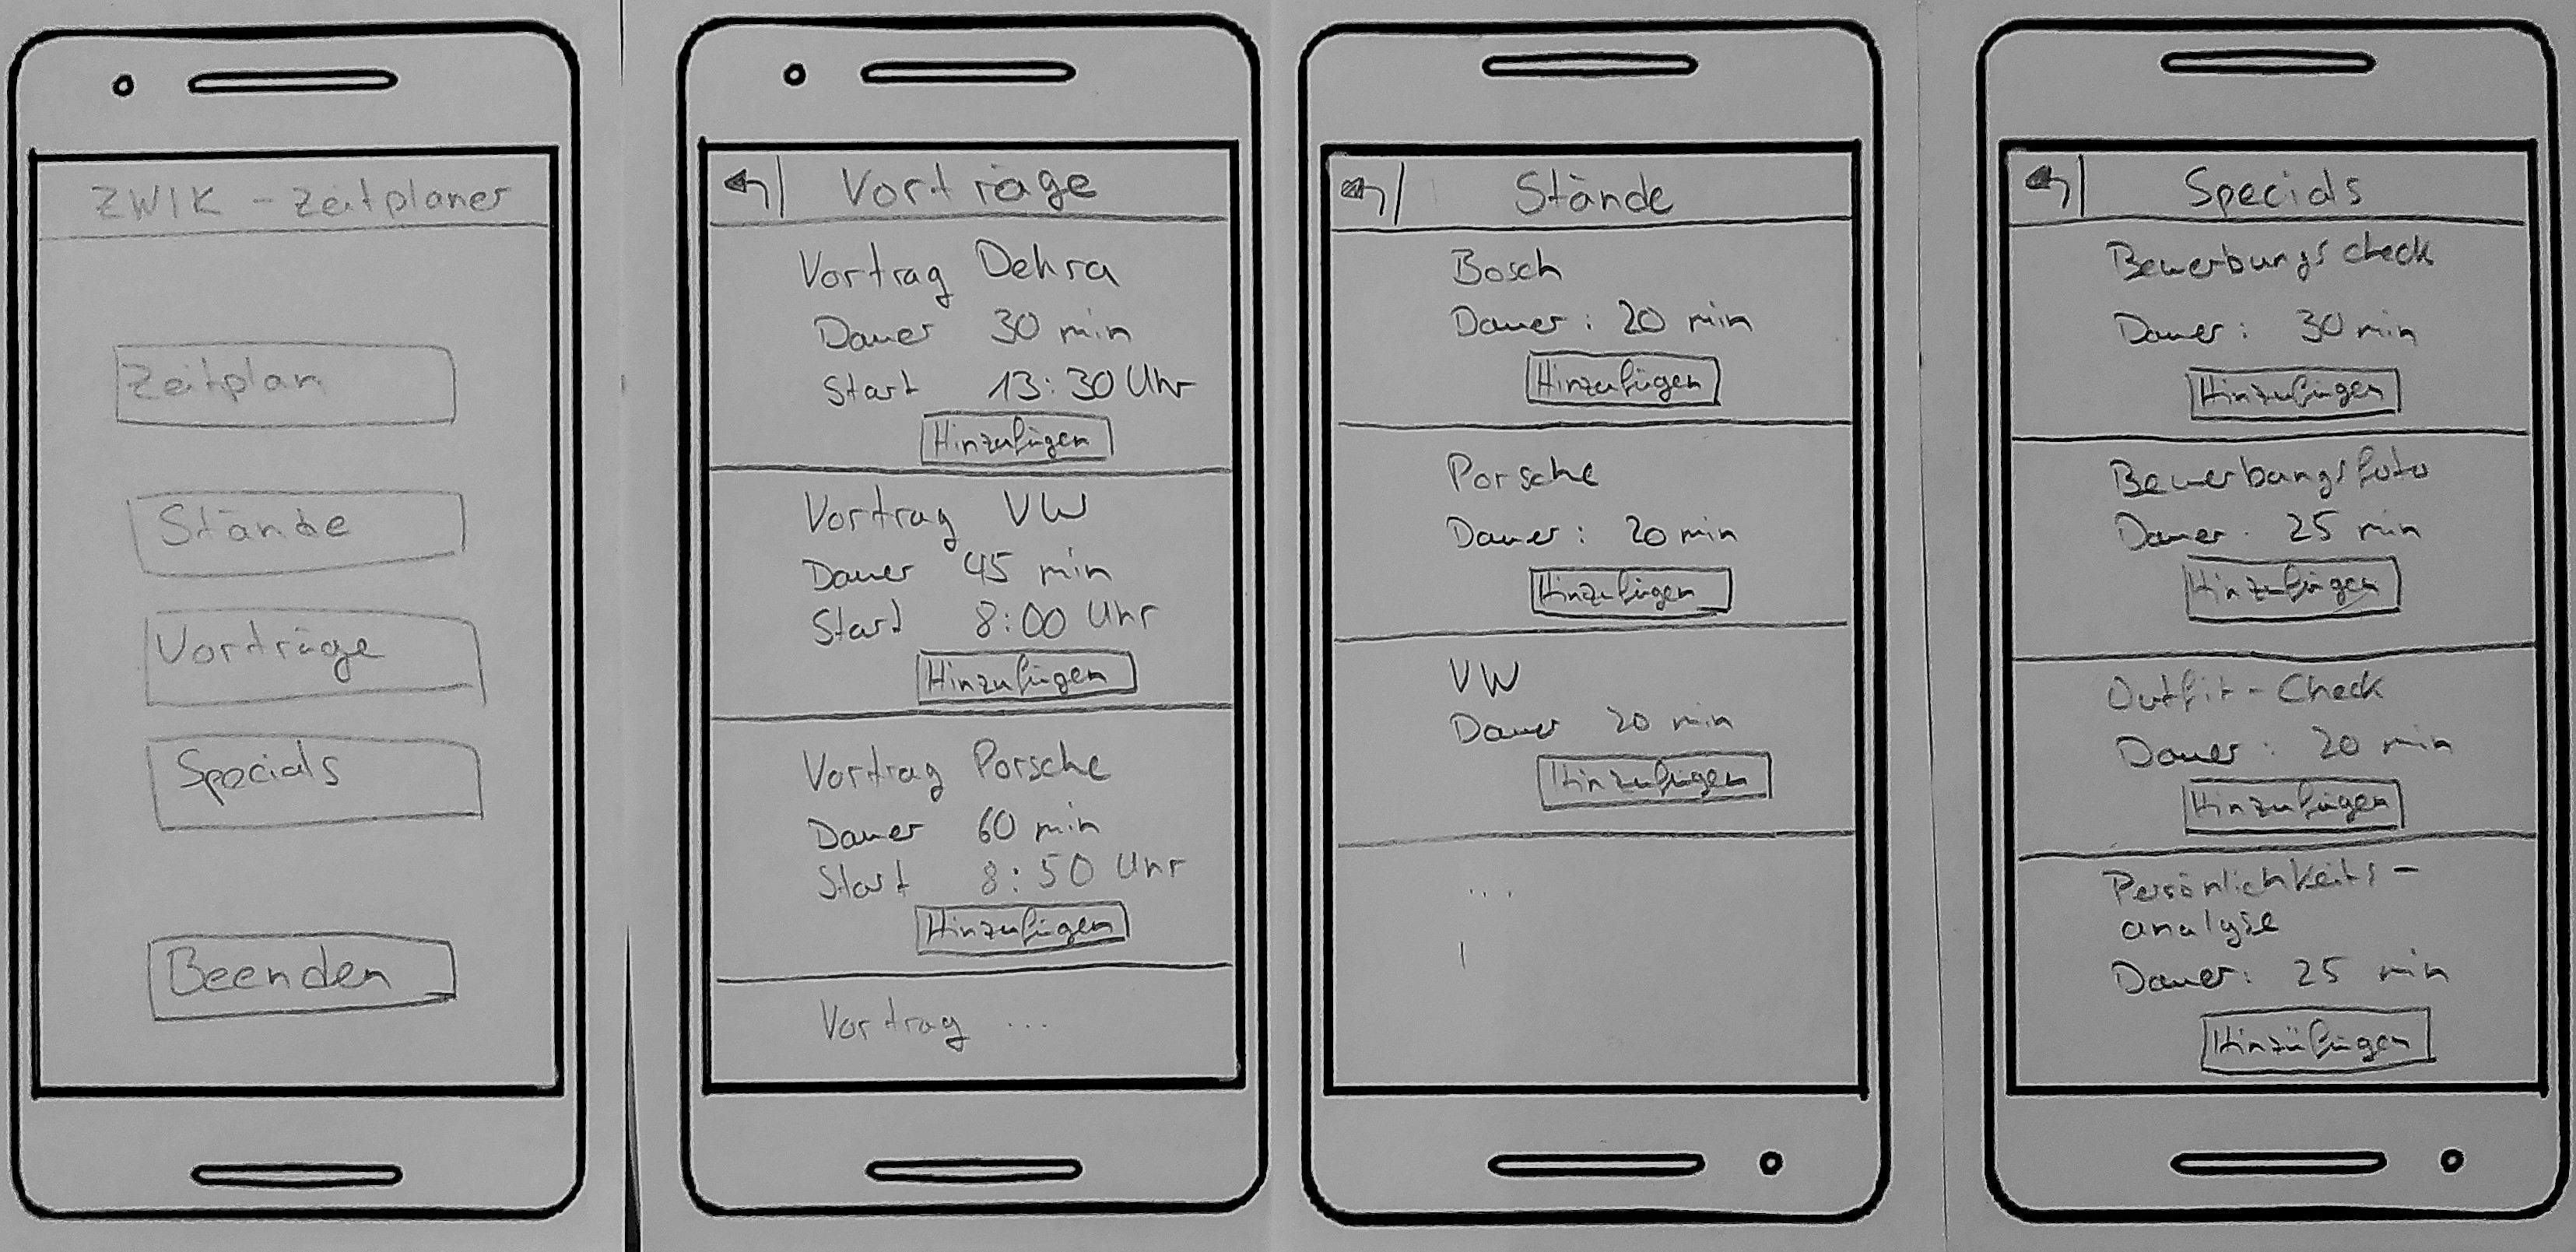 ZWIK - Zeitplaner
Zeitplan
Stände
Vorträge
Specials
Beenden
Vorträge
Vortrag Dekra
Dauer 30 min
Start 13:30 Uhr
Hinzufügen
Vortrag VW
Dauer 45 min
Start 8:00 Uhr
Hinzufügen
Vortrag Porsche
Dauer 60 min
Start 8:50 Uhr
Hinzufügen
Vortrag ...
Stände
Bosch
Dauer: 20 min
Hinzufügen
Porsche
Dauer: 20 min
Hinzufügen
VW
Dauer 20 min
Hinzufügen
...
Specials
Bewerbungscheck
Dauer: 30 min
Hinzufügen
Bewerbungsfoto
Dauer. 25 min
Hinzufügen
Outfit-Check
Dauer: 20 min
Hinzufügen
Persönlichkeits-
analyse
Dauer: 25 min
Hinzufügen